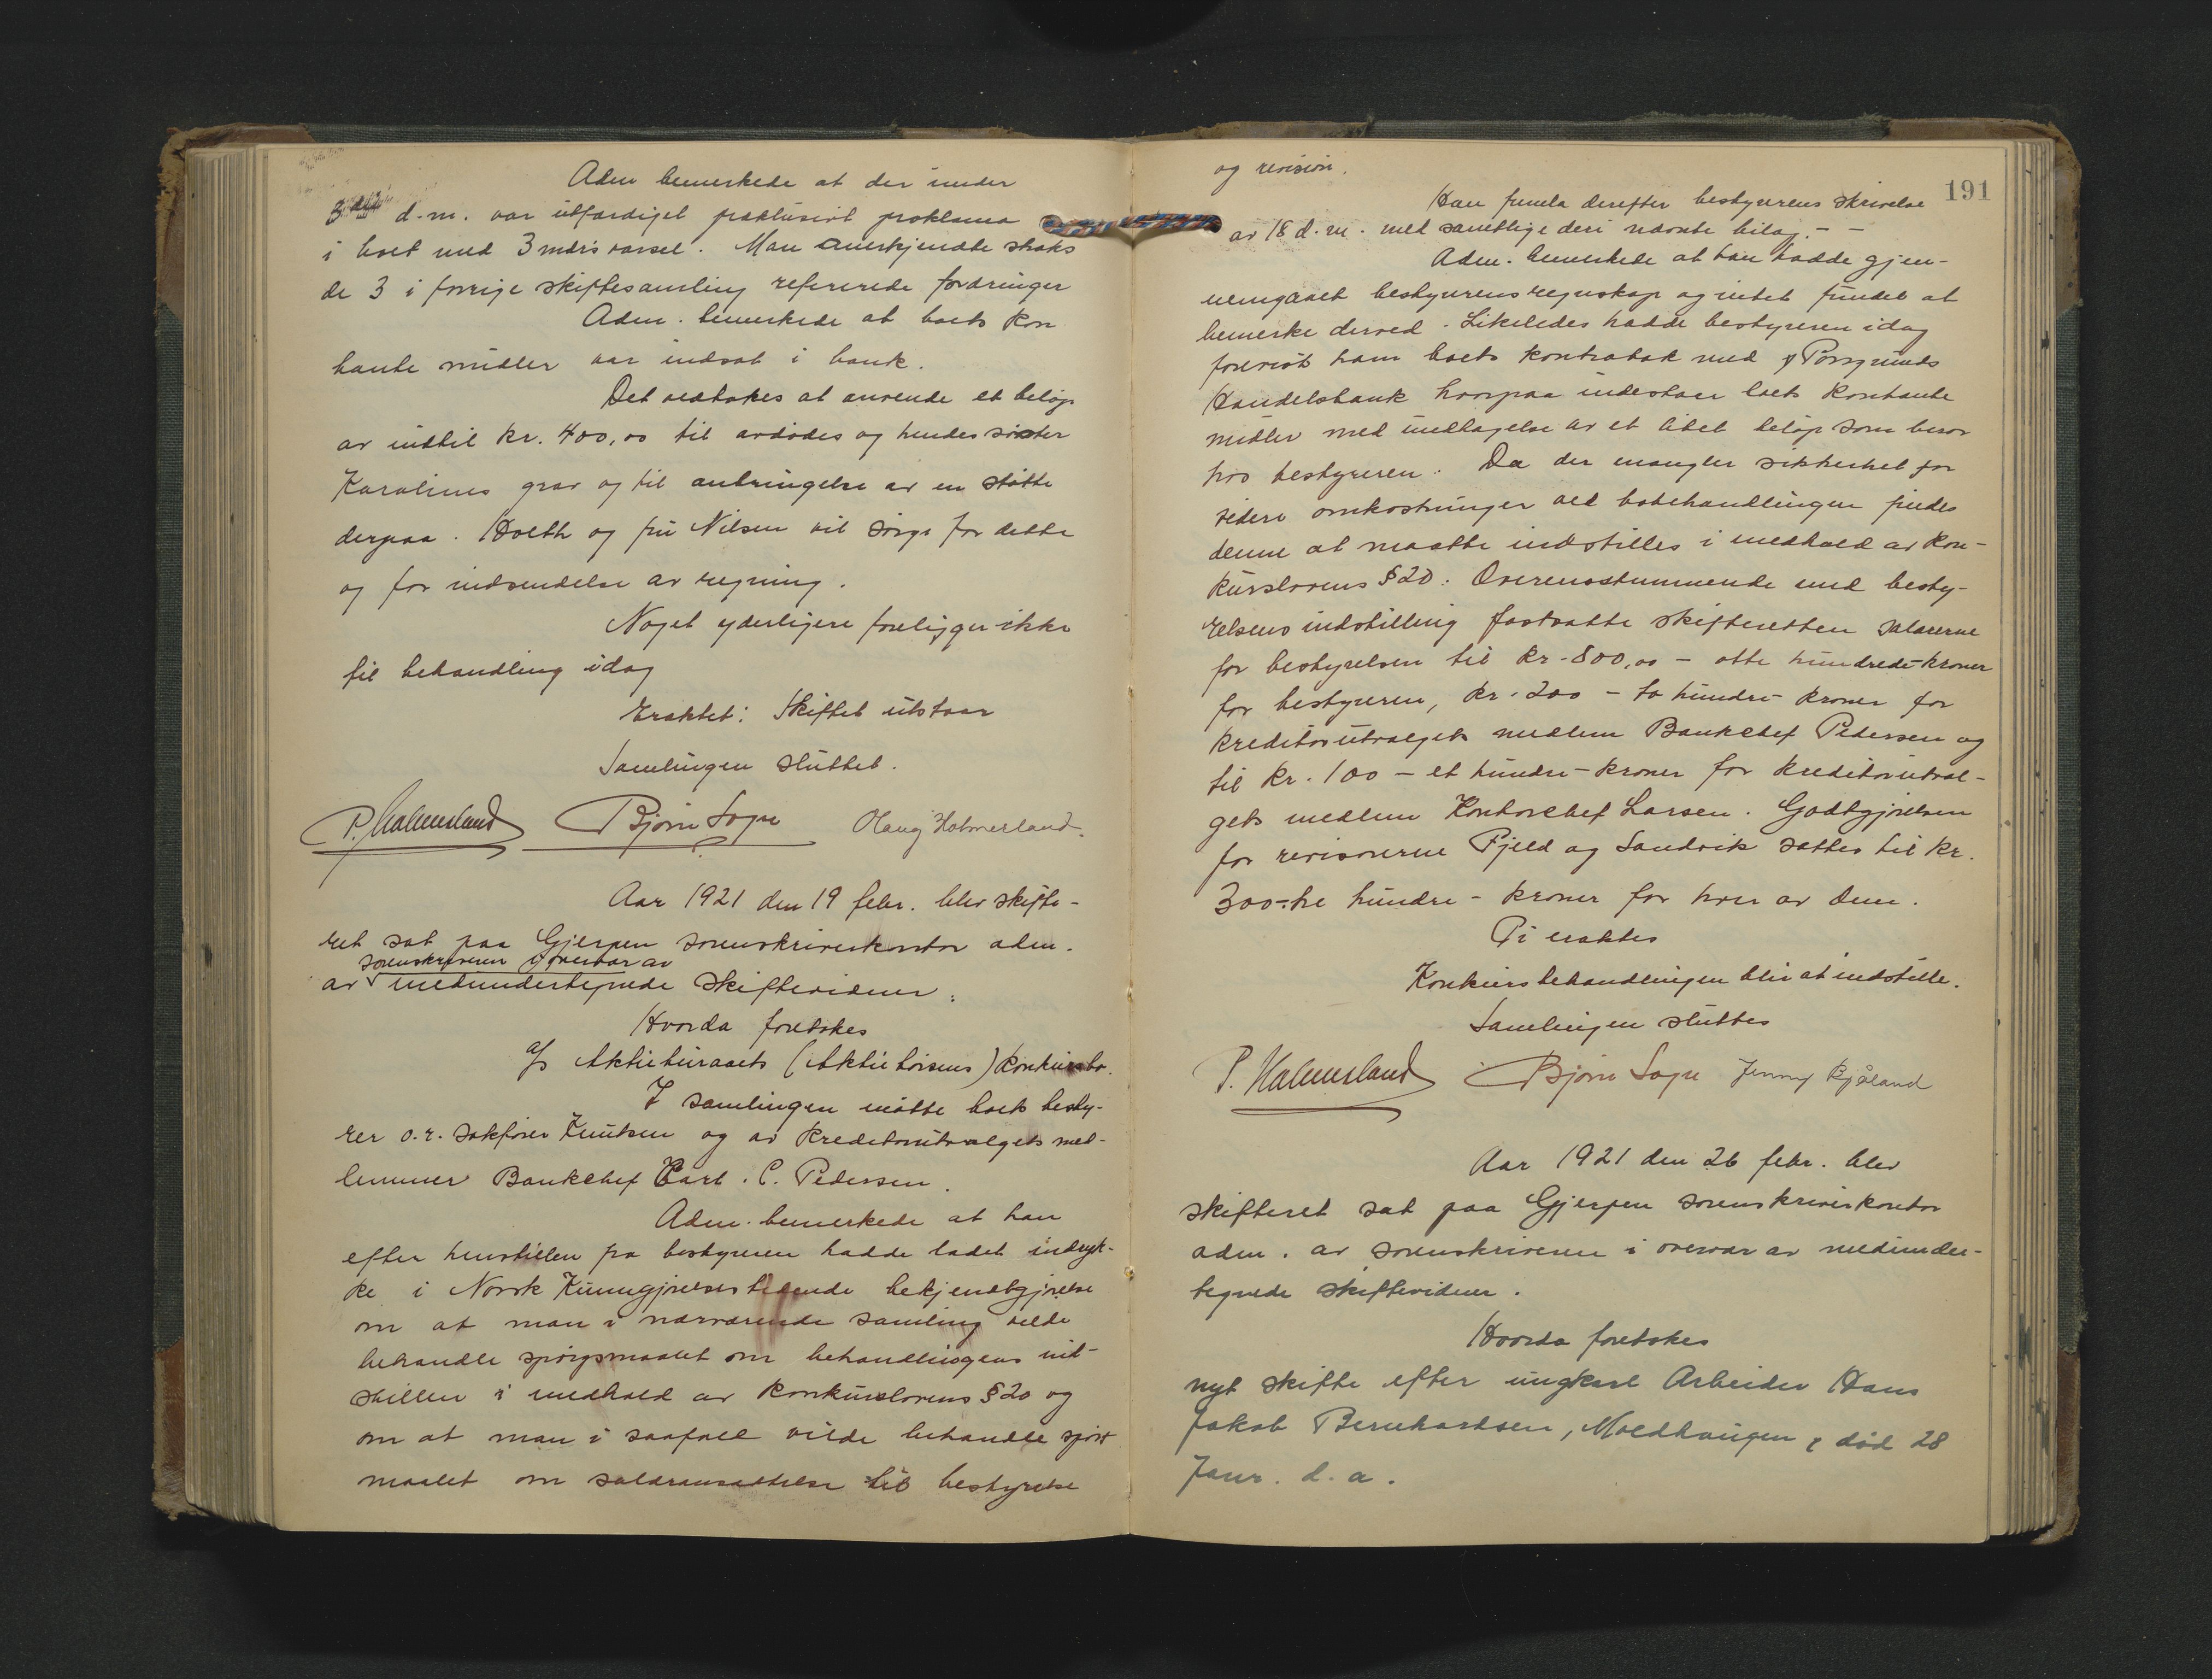 Adm bemerkede at der under
3die d.m. var utfærdiget præklusivt proklama
i boet med 3 mdrs varsel. Man anerkjendte straks
de 3 i forrige skiftesamling refererede fordringer
Adm. bemerkede at boets kon
tante midler var indsat i bank.
Det vedtokes at anvende et beløp
av indtil kr. 400,00 til avdødes og hendes søster
Karolines grav og til anbringelse av en støtte
derpaa. Holth og fru Nilsen vil sørge for dette
og for indsendelse av regning.
Noget yderligere foreligger ikke
til behandling idag
Eraktet: Skiftet utstaar
Samlingen sluttet.
P. Halmrland Bjørn Sogn Olaug Holmerland.
Aar 1921 den 19 febr. blev skifte-
ret sat paa Gjerpen sorenskriverkontor adm.
sorenskriveren i overvær av
av medundertegnede skiftevidner:
Hvorda foretokes
a/s Aktiebureaets (Aktiebørsens) konkursbo.
I samlingen møtte boets besty-
rer o.r. sakfører Knutsen og av kreditorutvalgets med-
lemmer Bankchef Carl. C. Pedersen.
Adm. bemerkede at han
efter henstillen fra bestyreren hadde ladet indryk-
ke i Norsk Kunngjørelsestidende bekjendtgjørelse
om at man i nærværende samling vilde
behandle spørgsmaalet om behandlingens ind-
stillen i medhold av konkurslovens § 20 og
om at man i saafald vilde behandle spørs
maalet om salæransættelse til bestyrelse
191
og revision.
Han femla derefter bestyrerens skrivelse
av 18 d.m. med samtlige deri nævnte bilag. - -
Adm. bemerkede at han hadde gjen-
nemgaaet bestyrerens regnskap og intet fundet at
bemerke derved. Likeledes hadde bestyreren idag
forevist ham boets kontrabok med Porsgrunds
Handelsbank hvorpaa indestaar boets kontante
midler med undtagelse av et litet beløp som beror
hos bestyreren. Da der mangler sikkerhet for
videre omkostninger ved bobehandlingen findes
denne at maatte indstilles i medhold av kon-
kurslovens § 20. Overensstemmende med besty-
relsens indstilling fastsatte skifteretten salærerne
for bestyrelsen til kr. 800,00 - otte hundrede - kroner
for bestyreren, kr. 200 - to hundre - kroner for
kreditorutvalgets medlem Bankchef Pedersen og
til kr. 100 - et hundre - kroner for kreditorutval-
gets medlem Kontorchef Larsen. Godtgjørelsen
for revisorerne Fjeld og Sandvik sattes til kr.
300 - tre hundre - kroner for hver av dem.
Ti eraktes
Konkursbehandlingen blir at indstille.
Samlingen sluttes
P. Halmrland Bjørn Sogn Jenny Kjåland
Aar 1921 den 26 febr. blev
skifteret sat paa Gjerpen sorenskriverkontor
adm. av sorenskriveren i overvær av medunder-
tegnede skiftevidner.
Hvorda foretokes
nyt skifte efter ungkarl Arbeider Hans
Jakob Bernhardsen, Moldhaugen, død 28
Janr. d.a.